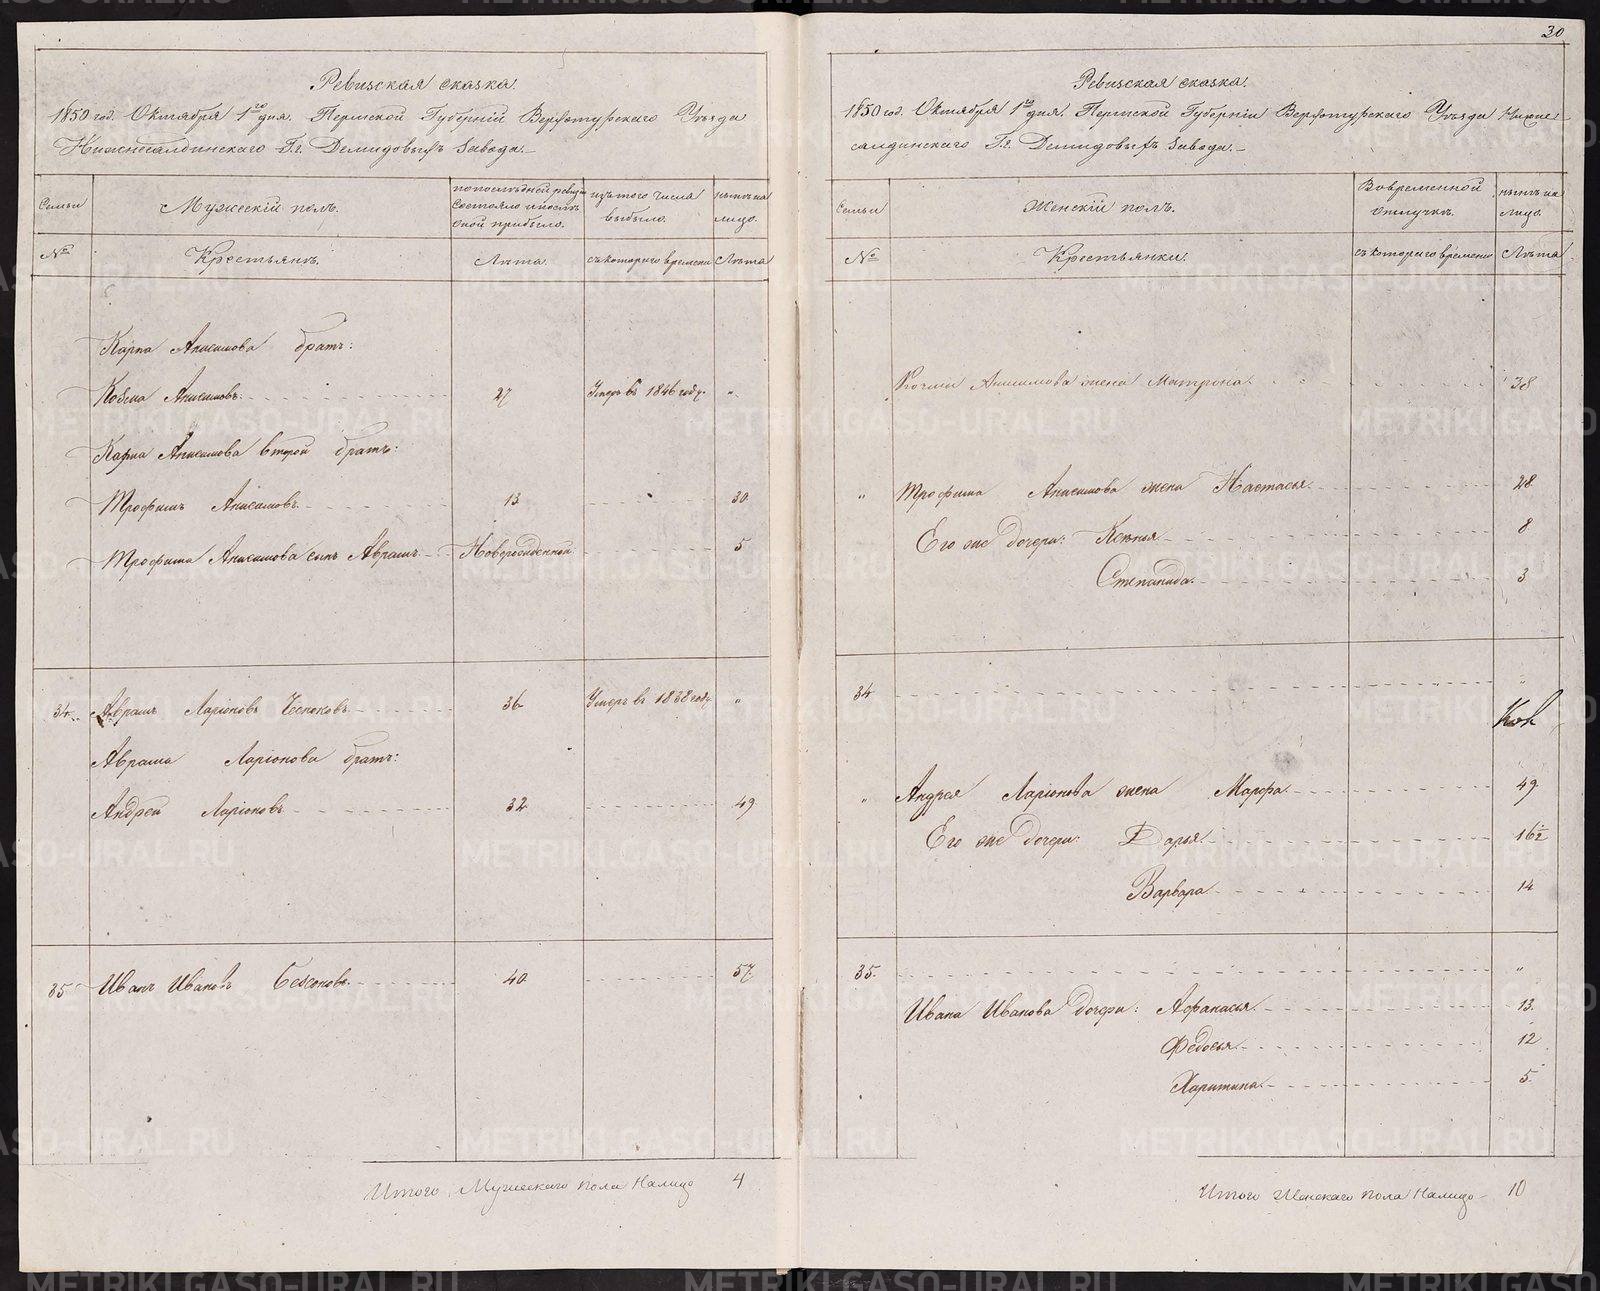 30
Ревизская сказка.
1850 год. Октября 1го дня. Пермской Губернiи Верхотурскаго Уѣзда
Нижнесалдинскаго Г.г. Демидовыхъ Завода.
Семьи
Мужескiй полъ.
по послѣдней ревизiи
состояло и послѣ
оной прибыло.
изъ того числа
выбыло.
нынѣ на
лицо.
№
Крестьянъ.
Лѣта.
съ котораго времени
Лѣта
Карпа Анисимова братъ:
Козма Анисимовъ. 27 Умеръ въ 1846 году. "
Карпа Анисимова второй братъ:
Трофимъ Анисимовъ. 13 30
Трофима Анисимова сынъ Аврамъ Новорожденный 5
34. Аврамъ Ларiоновъ Чесноковъ 36 Умеръ въ 1838 году "
Аврама Ларiонова братъ:
Андрей Ларiоновъ 32 49
35 Иванъ Ивановъ Безсоновъ. 40 57
Итого Мужескаго пола Налицо 4
Ревизская сказка.
1850 год. Октября 1го дня. Пермской Губернiи Верхотурскаго Уѣзда Нижне-
салдинскаго Г.г. Демидовыхъ Завода.
Семьи
Женскiй полъ.
Во временной
отлучкѣ.
нынѣ на
лицо.
№
Крестьянки.
съ котораго времени
Лѣта
Козмы Анисимова жена Матрона 38
" Трофима Анисимова жена Настасья 28
Его же дочери: Ксенья 8
Степанида. 3
34 "
" Андрея Ларiонова жена Марфа 49
Его же дочери: Дарья 16½
Варвара 14
35. "
Ивана Иванова дочери: Афанасья. 13.
Федосья 12
Харитина 5
Итого Женскаго пола Налицо 10
METRIKI.GASO-URAL.RU